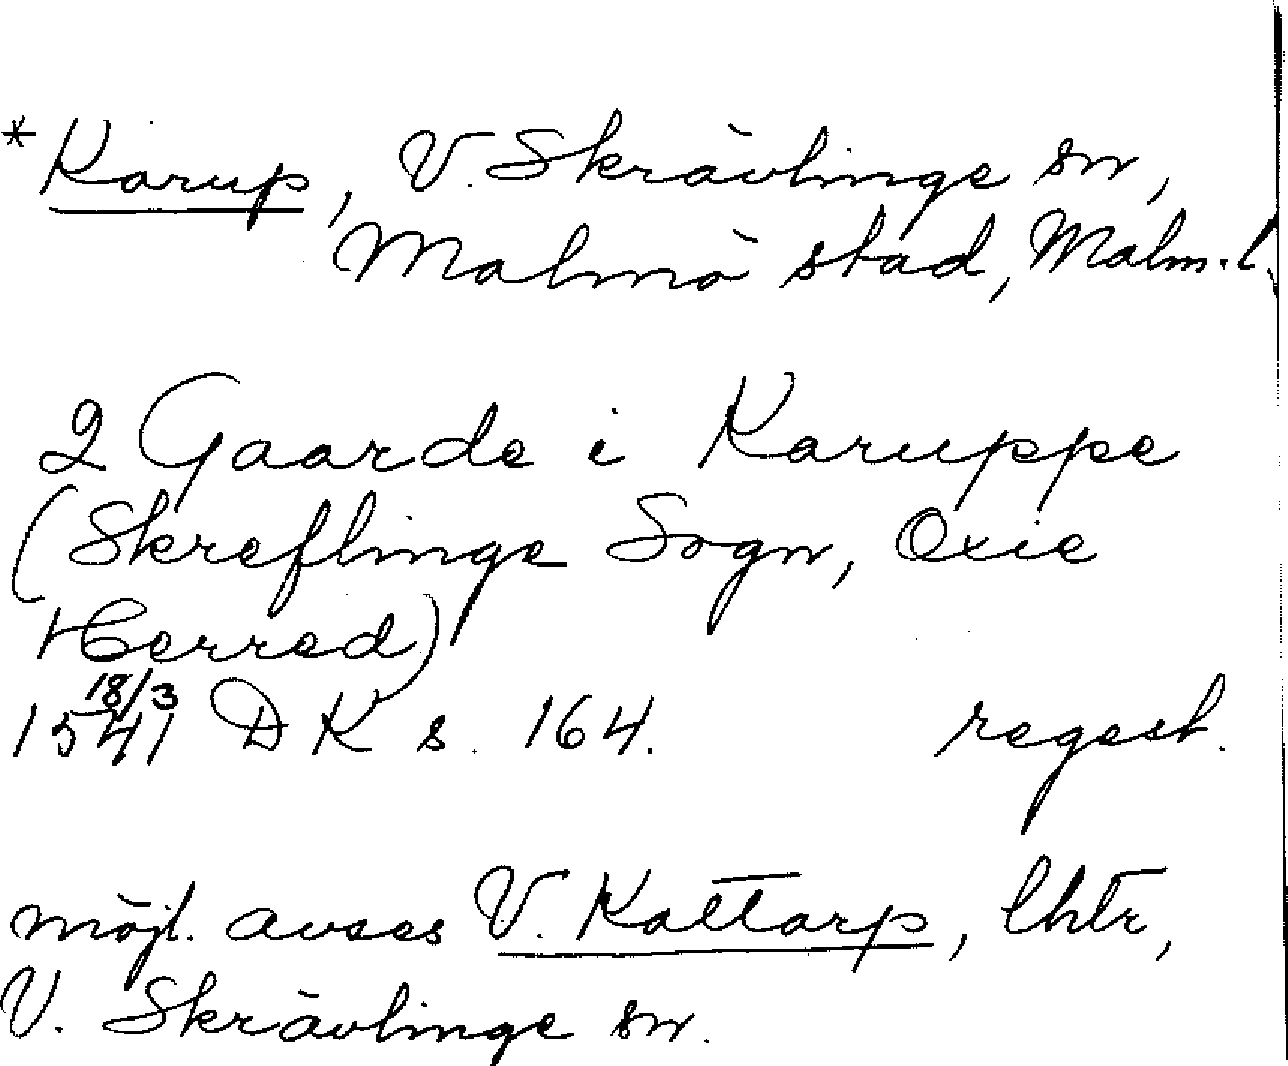 *Karup, V. Skrävlinge sn,
Malmö stad, Malm. l.
2 Gaarde i Karuppe
(Skreflinge Sogn, Oxie
Herred)
1541 18/3 DK s. 164. regest.
möjl. avses V. Kattarp, lhtr,
V. Skrävlinge sn.